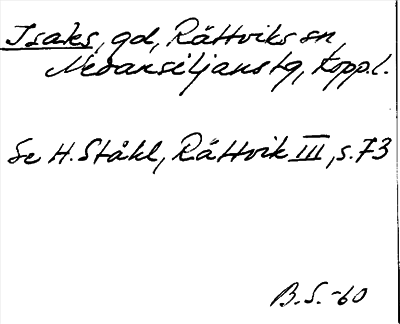 Isaks, gd, Rättviks sn,
Nedansiljans tg, Kopp.l.
Se H. Ståhl, Rättvik III, s. 73
B.S. -60